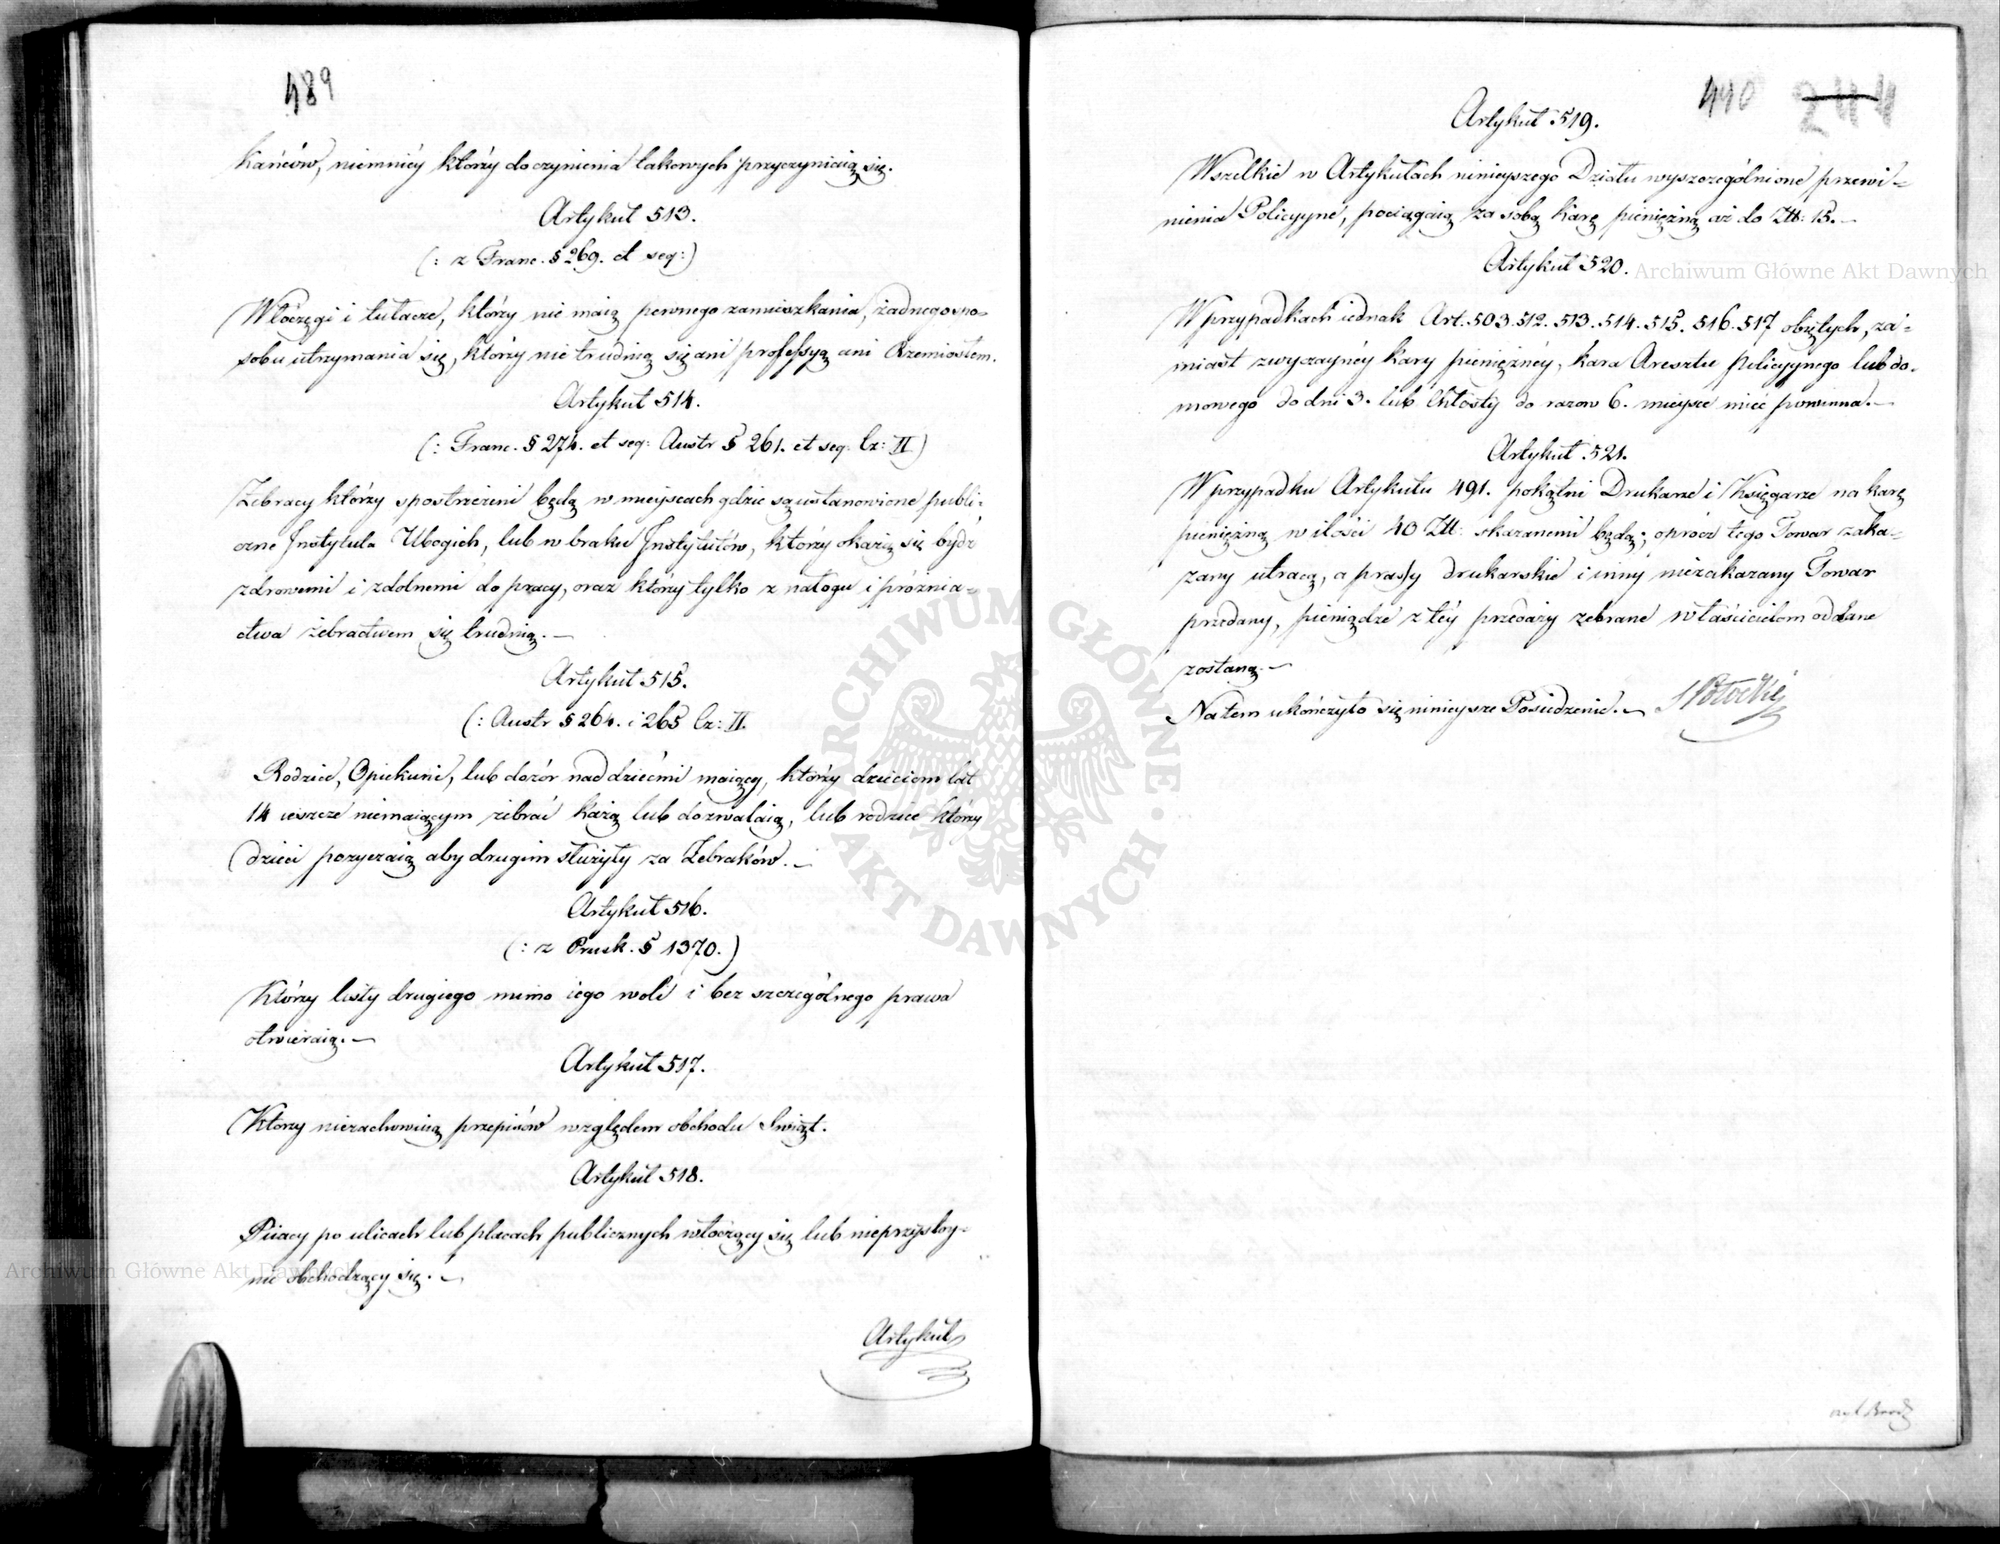 489
kańców, niemniéy którzy do czynienia takowych przyczyniaią się.
Artykuł 513.
(: z Franc. § 269. et seq:)
Włóczęgi i tułacze, którzy nie maią pewnego zamieszkania, żadnego spo-
sobu utrzymania się, którzy nie trudnią się ani professyą ani Rzemiosłem.
Artykuł 514.
(: Franc. § 274. et seq: Austr § 261. et seq. Cz: II)
Żebracy którzy spostrzeżeni będą w mieyscach gdzie są ustanowione publi-
czne Instytuta Ubogich, lub w braku Instytutów, którzy okażą się bydź
zdrowemi i zdolnemi do pracy, oraz którzy tylko z nałogu i próżnia-
ctwa żebractwem się trudnią. —
Artykuł 515.
(: Austr § 264. i 265 Cz: II.
Rodzice, Opiekuni, lub dozór nad dziećmi maiący, którzy dzieciom lat
14 ieszcze niemaiącym żebrać każą lub dozwalaią, lub rodzice którzy
dzieci pożyczaią aby drugim służyły za Żebraków. —
Artykuł 516.
(: z Prusk. § 1370.)
Którzy listy drugiego mimo iego woli i bez szczególnego prawa
otwieraią. —
Artykuł 517.
Którzy niezachowuią przepisów względem obchodu Świąt.
Artykuł 518.
Piiacy po ulicach lub placach publicznych włóczący się lub nieprzystoy-
nie obchodzący się. —
Artykuł
490 244
Artykuł 519.
Wszelkie w Artykułach ninieyszego Działu wyszczególnione przewi-
nienia Policyyne, pociągaią za sobą karę pieniężną aż do Zł: 15. —
Artykuł 520.
W przypadkach iednak Art. 503. 512. 513. 514. 515. 516. 517 obiętych, za-
miast zwyczaynéy kary pieniężnéy, kara Aresztu policyynego lub do-
mowego do dni 3. lub Chłosty do razow 6. mieysce mieć powinna. —
Artykuł 521.
W przypadku Artykułu 491. pokątni Drukarze i Księgarze na karę
pieniężną w ilości 40 Zł: skazanemi będą; oprócz tego Towar zaka-
zany utracą, a prassy drukarskie i inny niezakazany Towar
przedany, pieniądze z téy przedaży zebrane właścicielom oddane
zostaną. —
Na tem ukończyło się ninieysze Posiedzenie. — SPotocki
Archiwum Główne Akt Dawnych
Archiwum Główne Akt Dawnych
ARCHIWUM GŁÓWNE AKT DAWNYCH